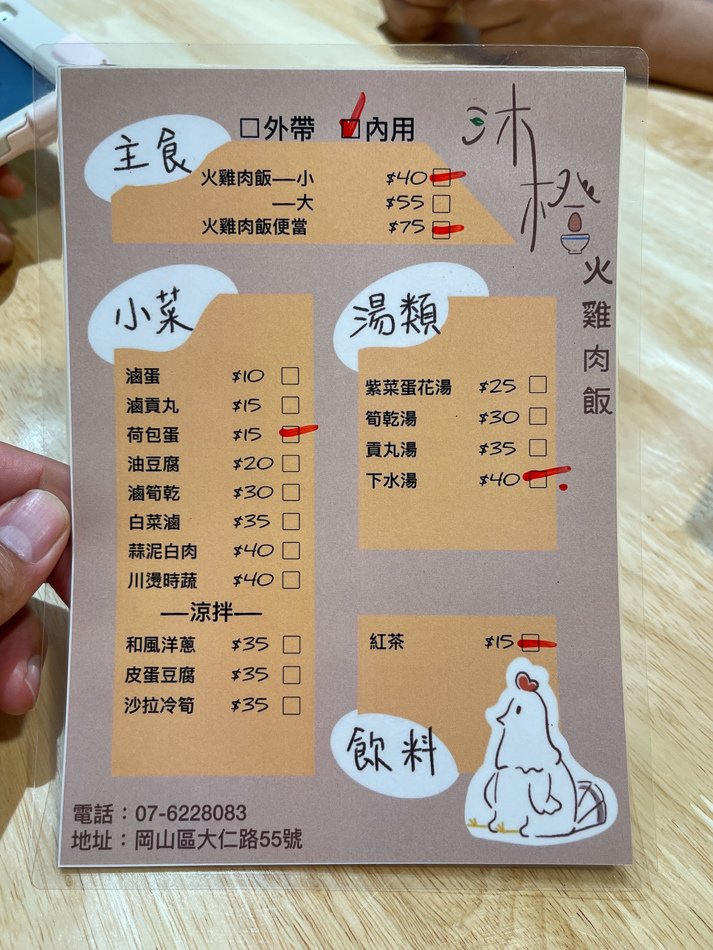 □外帶 □內用
沐橙
火雞肉飯
主食
火雞肉飯—小 $40 □
—大 $55 □
火雞肉飯便當 $75 □
小菜
滷蛋 $10 □
滷貢丸 $15 □
荷包蛋 $15 □
油豆腐 $20 □
滷筍乾 $30 □
白菜滷 $35 □
蒜泥白肉 $40 □
川燙時蔬 $40 □
—涼拌—
和風洋蔥 $35 □
皮蛋豆腐 $35 □
沙拉冷筍 $35 □
湯類
紫菜蛋花湯 $25 □
筍乾湯 $30 □
貢丸湯 $35 □
下水湯 $40 □
紅茶 $15 □
飲料
電話：07-6228083
地址：岡山區大仁路55號